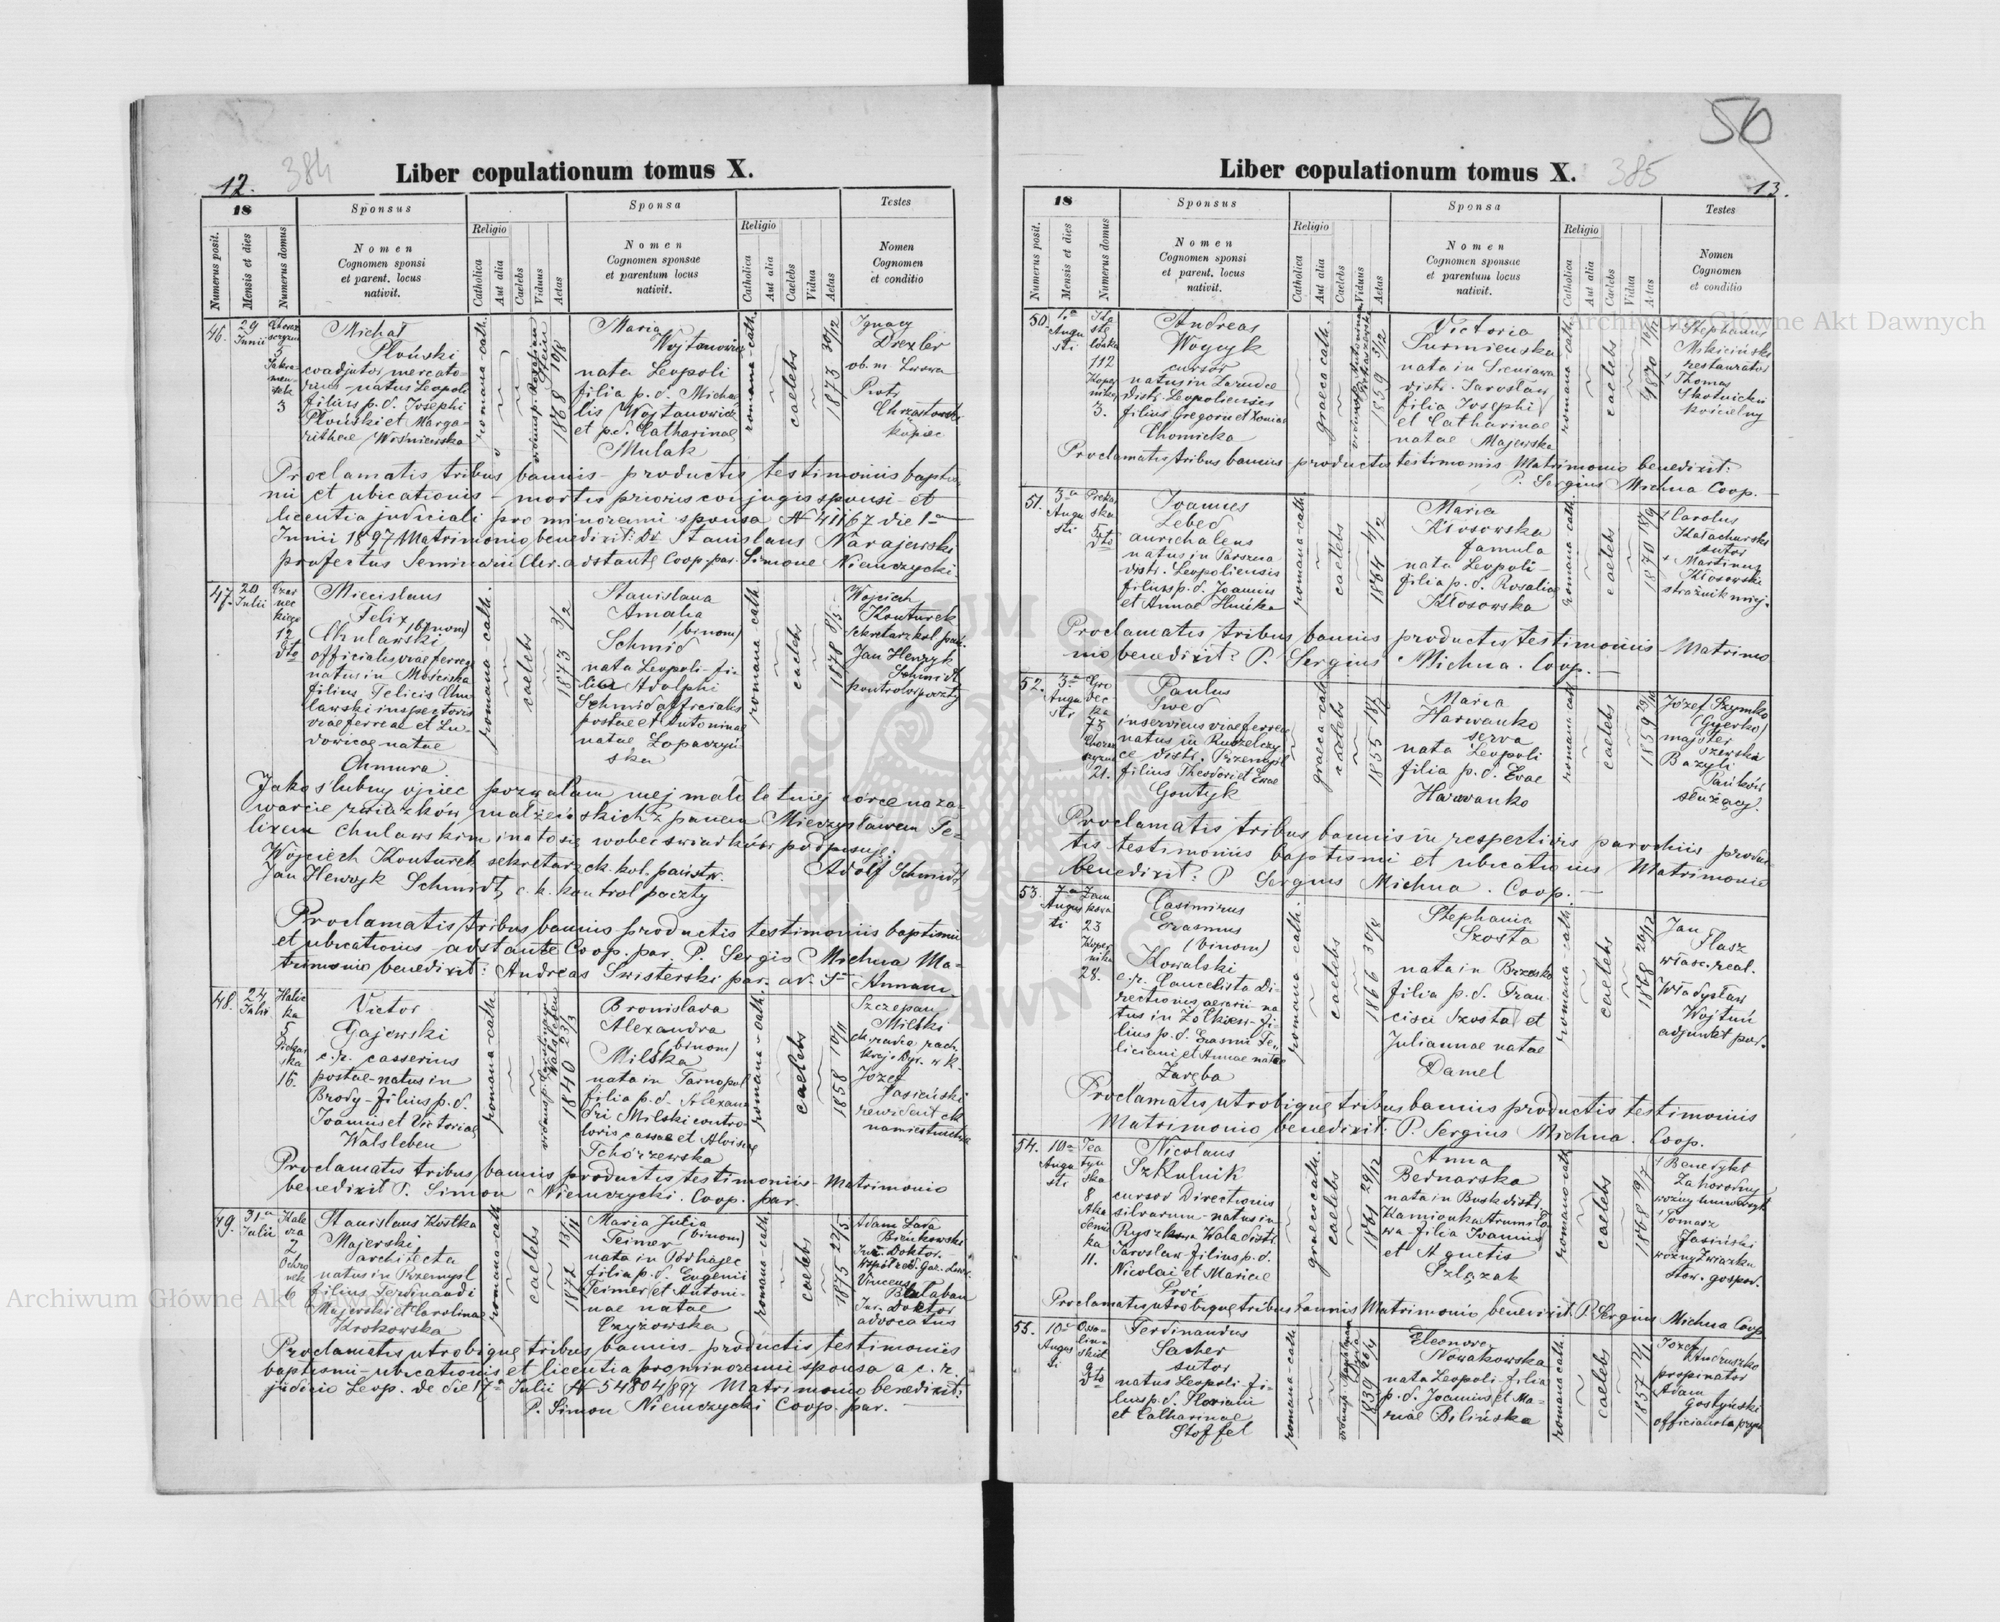 12.
384
Liber copulationum tomus X.
18
Sponsus
Sponsa
Testes
Numerus posit.
Mensis et dies
Numerus domus
Nomen
Cognomen sponsi
et parent. locus
nativit.
Religio
Catholica
Aut alia
Caelebs
Viduus
Aetas
Nomen
Cognomen sponsae
et parentum locus
nativit.
Religio
Catholica
Aut alia
Caelebs
Vidua
Aetas
Nomen
Cognomen
et conditio
46.
29
Junii
3
Michał
Płoński
coadjutor mercato-
rius - natus Leopoli
filius p.d. Josephi
Płoński et Marga-
rithae Wiśniewska
romana-cath.
1868 10/8
Maria
Wojtanowicz
nata Leopoli
filia p.d. Michae-
lis Wojtanowicz
et p.d. Catharinae
Mulak
romana-cath.
caelebs
1873 30/12
Ignacy
Drexler
ob. m. Lwowa
Piotr
Chrząstowski
kupiec
Proclamatis tribus bannis - productis testimoniis baptis-
mi et ubicationis - mortis prioris conjugis sponsi - et
licentia judiciali pro minorenni sponsa N 41167 die 1a
Junii 1897 Matrimonio benedixit: Dr Stanislaus Narajewski
profectus Seminarii Cler. adstante Coop. par. Simone Niemczycki.
47.
20
Julii
Czar
nec
kiego
12
dto
Miecislaus
Felix (binom)
Chulawski
officialis viae ferreae
natus in Mościska
filius Felicis Chu-
lawski inspectoris
viae ferreae et Lu-
dovicae natae
Chmura
romana-cath.
caelebs
1873 3/2
Stanislava
Amalia
(binom)
Schmid
nata Leopoli - fi-
lia Adolphi
Schmid officialis
postae et Antoninae
natae Łopaczyń-
ska
romana cath.
caelebs
1878 8/5
Wojciech
Konturek
sekretarz kol. pań.
Jan Henryk
Schmidt
kontrolor poczty
Jako ślubny ojciec pozwalam mej małoletniej córce na za-
warcie związków małżeńskich z panem Mieczysławem Fe-
lixem Chulawskim i na to się wobec świadków podpisuję:
Wojciech Konturek sekretarz ck. kol. państw.
Adolf Schmidt
Jan Henryk Schmidt, c.k. kontrol poczty
Proclamatis tribus bannis productis testimoniis baptismi
et ubicationis - adstante Coop. par. P. Sergio Michna Ma-
trimonio benedixit: Andreas Swisterski par. ad. S. Annam
48.
24
Julii
Halic
ka
5
Piekar
ska
16.
Victor
Gajewski
c.r. casserius
postae - natus in
Brody - filius p.d.
Joannis et Victoriae
Walsleben
romana-cath.
1840 23/3
Bronislava
Alexandra
(binom)
Milska
nata in Tarnopol
filia p.d. Alexan-
dri Milski contro-
loris cassae et Aloisiae
Tchórzewska
romana-cath.
caelebs
1858 10/11
Szczepan
Milski
Józef
Jasieński
rewident ck
namiestnictwa
Proclamatis tribus bannis productis testimoniis - Matrimonio
benedixit P. Simon Niemczycki. Coop. par.
49.
31a
Julii
2
Ochro
nek
6
Stanislaus Kostka
Majerski
architecta
natus in Przemyśl
filius Ferdinandi
Majerski et Carolinae
Krokowska
romana-cath
caelebs
1872 13/11
Maria Julia
(binom)
Teimer
nata in Podhajce
filia p.d. Eugenii
Teimer et Antoni-
nae natae
Czyżowska
romana-cath.
caelebs
1875 22/5
Adam Zara
Bieńkowski
Jur. Doktor.
Współred. Gaz. Lwow.
Vincens
Bałaban
Jur. Doktor
advocatus
Proclamatis utrobique tribus bannis - productis testimoniis
baptismi - ubicationis et licentia pro minorenni sponsa a c.r.
judicio Leop. de die 17a Julii N 54804/897 Matrimonio benedixit:
P. Simon Niemczycki Coop. par.
50
385
13.
Liber copulationum tomus X.
18
Sponsus
Sponsa
Testes
Numerus posit.
Mensis et dies
Numerus domus
Nomen
Cognomen sponsi
et parent. locus
nativit.
Religio
Catholica
Aut alia
Caelebs
Viduus
Aetas
Nomen
Cognomen sponsae
et parentum locus
nativit.
Religio
Catholica
Aut alia
Caelebs
Vidua
Aetas
Nomen
Cognomen
et conditio
50.
1a
Augu
sti
112
Koper
nika
3.
Andreas
Woycyk
cursor
natus in Zarudce
distr. Leopoliensis
filius Gregorii et Xeniae
Chomicka
graeca cath.
1859 3/12
Victoria
Surmieńska
nata in Sieniawa
distr. Jarosław
filia Josephi
et Catharinae
natae Majewska
romana cath.
caelebs
1870
Stephanus
Mikiciński
restaurator
Thomas
Skotnicki
kościelny
Proclamatis tribus bannis productis testimoniis Matrimonio benedixit:
P. Sergius Michna Coop.
51.
3a
Augu
sti
Piekar
ska
5
dto
Joannes
Lebed
aurichalceus
natus in Porszna
distr. Leopoliensis
filius p.d. Joannis
et Annae Hnidka
romana-cath.
caelebs
1864 4/2
Maria
Kłosowska
famula
nata Leopoli -
filia p.d. Rosaliae
Kłosowska
romana cath.
caelebs
1870 18/9
Carolus
Kasachurski
sutor
Martinus
Kłosowski
strażnik miej.
Proclamatis tribus bannis productis testimoniis - Matrimo
nio benedixit: P. Sergius Michna. Coop.
52.
3a
Augu
sti
Gro
dec
ka
73
21.
Paulus
Swed
inserviens viae ferreae
natus in Rudzelczy-
ce distr. Przemyśl
filius Theodori et Evae
Gontyk
graeca-cath.
caelebs
1855
Maria
Harwanko
serva
nata Leopoli
filia p.d. Evae
Harwanko
romana cath
caelebs
1859
Józef Szymko
(Gyerko)
majster
szewski
Bazyli
Pańków
służący.
Proclamatis tribus bannis in respectivis parochiis produc
tis testimoniis baptismi et ubicationis Matrimonio
benedixit: P Sergius Michna. Coop.
53.
7a
Augus
ti
23
Koper
nika
28.
Casimirus
Erasmus
(binom)
Kowalski
c.r. Cancelista Di-
rectionis aerarii na
tus in Żółkiew - fi-
lius p.d. Erasmi Fe-
liciani et Annae natae
Zaręba
romana - cath.
caelebs
1866
Stephania
Szosta
nata in Brzesko
filia p.d. Fran-
cisci Szosta et
Juliannae natae
Damel
romana-cath.
caelebs
1868 26/12
Jan
Flasz
właśc. real.
Władysław
Wojtuń
adjunkt pod.
Proclamatis utrobique tribus bannis productis testimoniis
Matrimonio benedixit: P. Sergius Michna. Coop.
54.
10a
Augu
sti
Tea
tyń
ska
8
Aka
demic
ka
11.
Nicolaus
Szkulnik
cursor Directionis
silvarum - natus in
Ryszkowa Wola distr.
Jarosław - filius p.d.
Nicolai et Mariae
Proć
graeco cath.
caelebs
1861 29/12
Anna
Bednarska
nata in Busk distr.
Kamionka Strumiło-
wa - filia Joannis
et Agnetis
Szlązak
romana cath
caelebs
1868 19/7
Benedykt
Zahorodny
woźny uniwersyt
Tomasz
Jasiński
woźny Związku
Stow. gospod.
Proclamatis utrobique tribus bannis Matrimonio benedixit P. Sergius Michna Coop
55.
10a
Augus
ti
Osso-
lińs
kich
9
dto
Ferdinandus
Sacher
sutor
natus Leopoli - fi-
lius p.d. Floriani
et Catharinae
Stoffel
romana-cath.
1839 26/4
Eleonora
Nowakowska
nata Leopoli - filia
p.d. Joannis et Ma-
riae Bilińska
romana cath.
caelebs
1857
Józef
Andruszko
propinator
Adam
Gostyński
officianta pryw
Archiwum Główne Akt Dawnych
Archiwum Główne Akt Dawnych